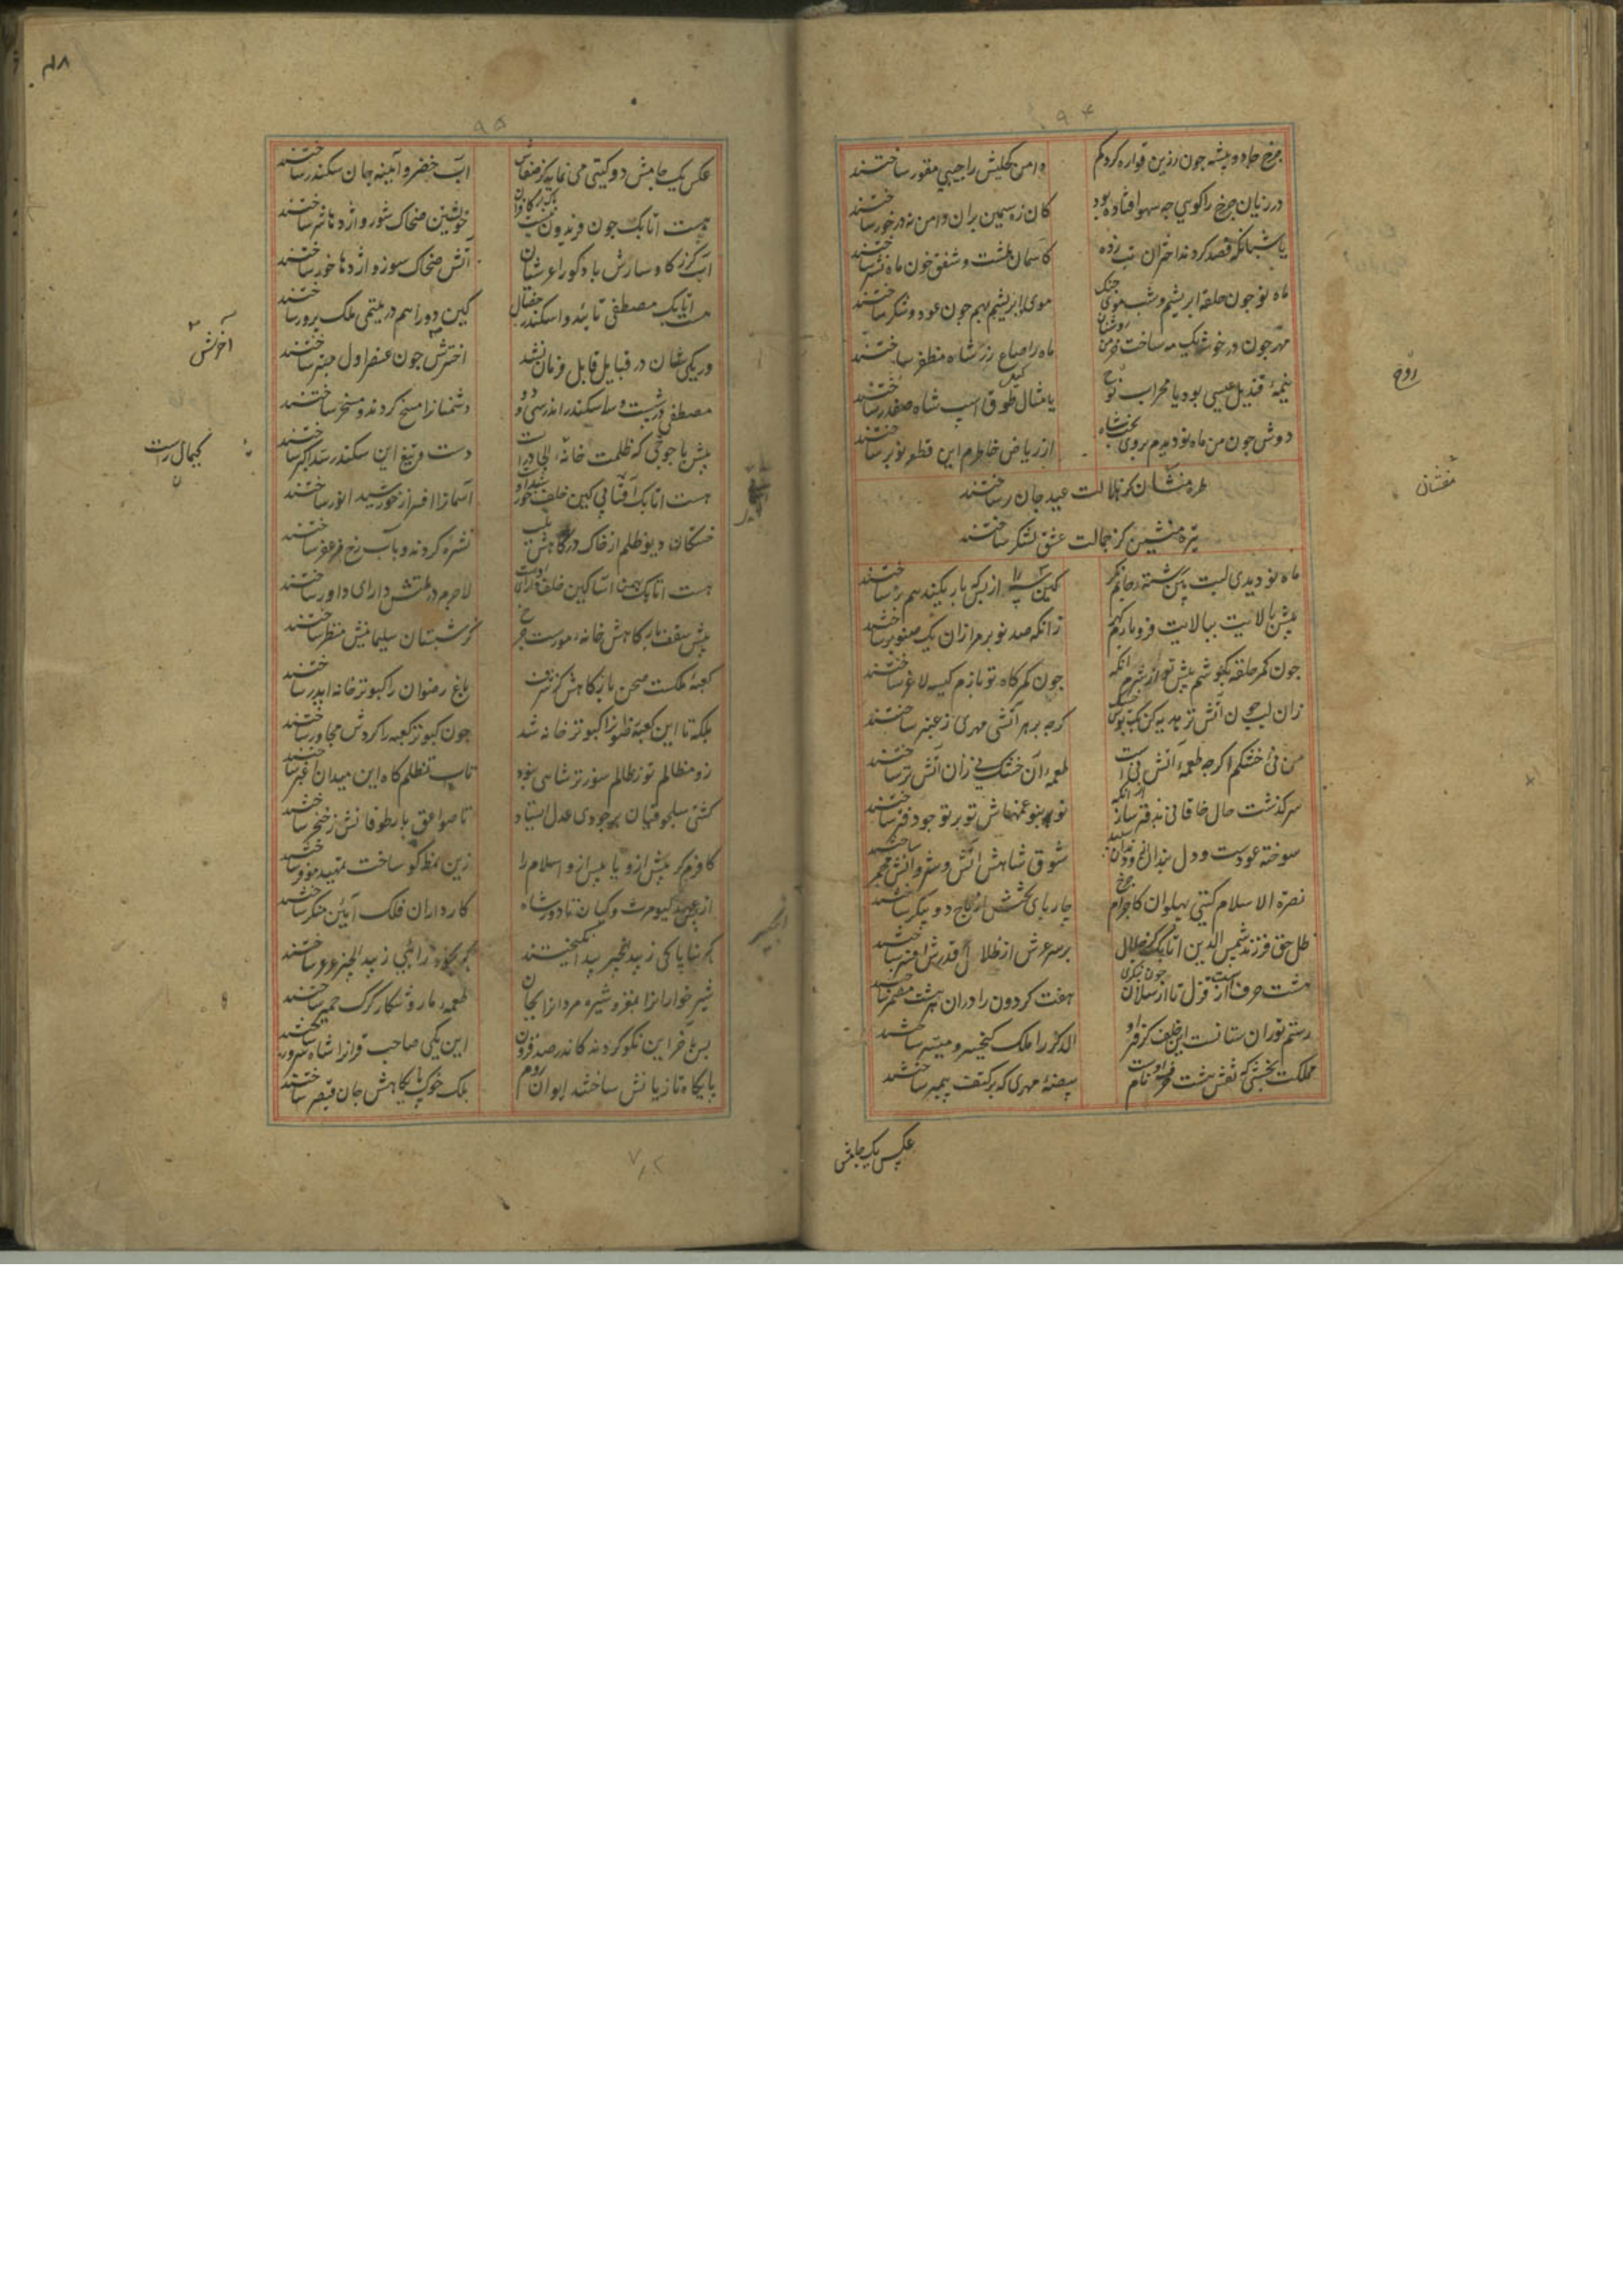 ۹۴
چرخ جادو پیشه چون زرین قواره کرد گم دامن کحلیش را جیبی مقور ساختند
درزیان چرخ را کویی چه سهو افتاده بود کان زه سیمین بران دامن نه درخور ساختند
یا شبانگه قصد کردند اختران تب زده کاسمان طشت و شفق خون ماه نشتر ساختند
ماه نو چون حلقه ابریشم و شب موی چنگ موی و ابریشم بهم چون عود و شکر ساختند
روشنان ماه را صاع زر شاه مظفر ساختند
نیمهٔ قندیل عیسی بود یا محراب روح یا مثال طوق اسب شاه صفدر ساختند
دوش چون من ماه نو دیدم بروی تخت شاه از ریاض خاطرم این قطعه نوبر ساختند
طره مفشان کز هلالت عید جان بر ساختند
تیره منشین کز جمالت عشق لشکر ساختند
ماه نو دیدی لبت بین رشته جانم نکر کین سه را از بس که باریکند همبر ساختند
پیش بالایت ببالایت فرو بارم کهر زانکه صد نوبر مرا زان یک صنوبر ساختند
چون کمر حلقه بکوشم پیش تو از شرم آنکه چون کمرکاه تو بازم کیسه لاغر ساختند
زان لب چون آتش تر هدیه کن یک بوس خشک کرچه بر هر آتشی مهری ز عنبر ساختند
من نی خشکم اکرچه طعمهٔ آتش نی است طعمهٔ آن خشک نی زان آتش تر ساختند
سرکذشت حال خاقانی بدفتر ساز از آنکه نو بنو غمهاش تو بر تو چو دفتر ساختند
سوخته عودست و دل بندان سپید شوق شاهش آتش و شروانش مجمر ساختند
نصرة الاسلام کیتی پهلوان کاجرام چرخ چار پای تختش از تاج دو پیکر ساختند
ظل حق فرزند شمس الدین اتابک کز جلال بر سر عرش از ظلال قدرش افسر ساختند
هشت حرفست از قزل تا ارسلان چون بنکری هفت کردون را دران هر هشت مضمر ساختند
رستم توران ستانست این خلف کز فر او الدکز را ملک کیخسرو میسر ساختند
مملکت بخشی که نقش هشت حرف نام اوست بیضهٔ مهری که بر کتف پیمبر ساختند
عکس یک جامش
روح
مفشان
۴۸
۹۵
عکس یک جامش دو کیتی می نماید کز صفاش آب خضر و آینه جان سکندر ساختند
هست اتابک چون فریدون نیست باک ار کافران خویشتن ضحاک شور و اژدها شر ساختند
آب کرز کاوسارش باد کو را عرشیان آتش ضحاک سوز و اژدها خور ساختند
هست اتابک مصطفی تایید و اسکندر خصال کین دو را هم در یتیمی ملک پرور ساختند
ور یکی شان در قبایل قابل فرمان نشد آخرش چون عنصر اول مبتر ساختند
مصطفی در شصت و سه اسکندر اندر سی و دو دشمنان را مسخ کردند و مسخر ساختند
پیش یاجوجی که ظلمت خانهٔ الحاد راست دست و تیغ این سکندر سد اکبر ساختند
هست اتابک آفتابی کین خلف خورشید او آسمان را افسر از خورشید انور ساختند
خستکان دیو ظلم از خاک درکاهش بلب نشره کردند و بآب رخ مزعفر ساختند
هست اتابک بهمن آسا کین خلف دارای اوست لاجرم در ملتش دارای داور ساختند
پیش سقف بارکاهش خایهٔ مورست چرخ کز شبستان سلیمانیش منظر ساختند
کعبهٔ ملکست صحن بارکاهش کز شرف باغ رضوان را کبوتر خانه ایدر ساختند
بلکه تا این کعبهٔ ظفر را کبوتر خانه شد چون کبوتر کعبه را کردش مجاور ساختند
زو مظالم توز ظالم سوزتر شاهی نبود تا بتظلم کاه این میدان اغبر ساختند
کشتی سلجوقیان بر جودی عدل ایستاد تا صواعق بار طوفانش ز خنجر ساختند
کافرم کر پیش ازو یا پس ازو اسلام را زین نمط کو ساخت تمهید موقر ساختند
از پی عهد کیومرث و کیان تا دور شاه کارداران فلک آیین منکر ساختند
شیرخواران را بمغز و شیرمردان را بجان طعمه مار و شکار کرک حمیر ساختند
پس بآخر این نکو کردند کاندر صد قران این یکی صاحب قران را شاه سرور ساختند
پایکاه تازیانش ساختند ایوان روم بلک خوک پایکاهش جان قیصر ساختند
آخرش
بجمال رست
انجیر